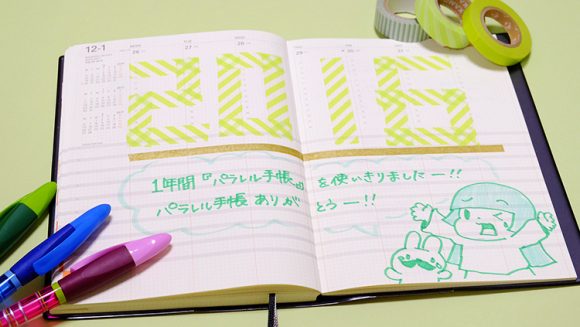 12-1
26
27
28
29
30
2016
1年間『パラレル手帳』を使いきりましたー!!
パラレル手帳 ありがとうー!!